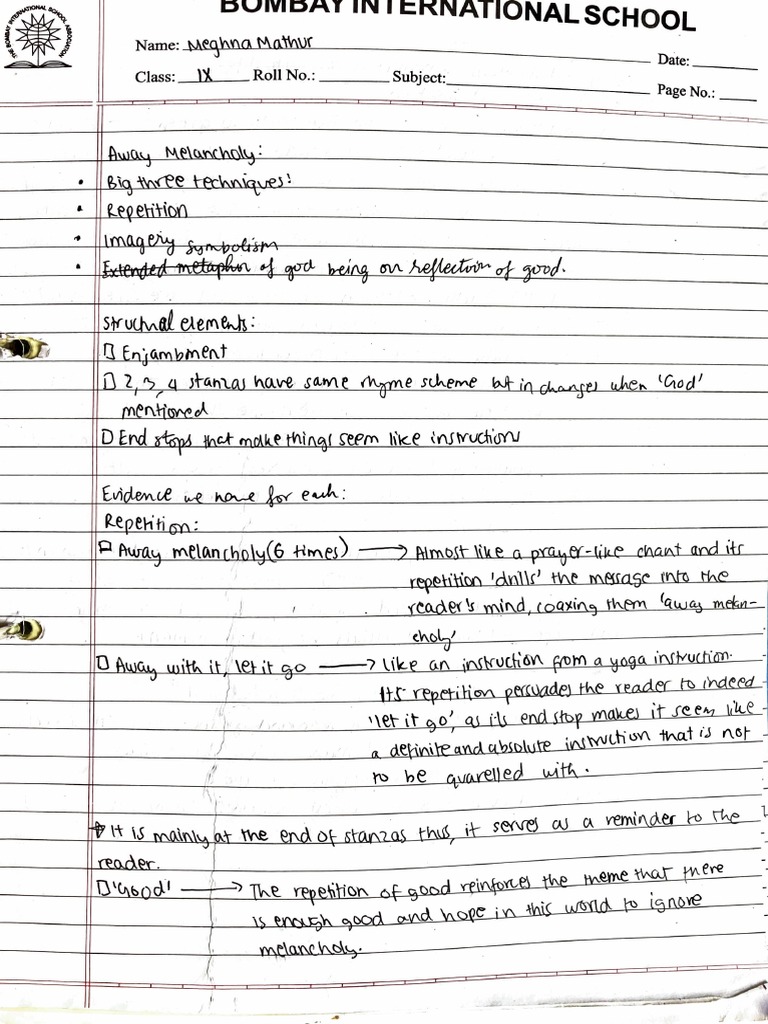 THE BOMBAY INTERNATIONAL SCHOOL ASSOCIATION
BOMBAY INTERNATIONAL SCHOOL
Name: Meghna Mathur
Date:
Class: IX Roll No.: Subject:
Page No.:
Away Melancholy:
• Big three techniques:
• Repetition
• Imagery symbolism
• Extended metaphor of god being on reflection of good.
Structural elements:
□ Enjambment
□ 2, 3, 4 stanzas have same rhyme scheme but in changes when 'God'
mentioned
□ End stops that make things seem like instructions
Evidence we have for each:
Repetition:
□ Away melancholy (6 times) → Almost like a prayer-like chant and its
repetition 'drills' the message into the
reader's mind, coaxing them 'away melan-
choly'
□ Away with it, let it go → like an instruction from a yoga instruction.
Its repetition persuades the reader to indeed
'let it go', as its end stop makes it seem like
a definite and absolute instruction that is not
to be quarelled with.
→ It is mainly at the end of stanzas thus, it serves as a reminder to the
reader.
□ 'Good' → The repetition of good reinforces the theme that there
is enough good and hope in this world to ignore
melancholy.